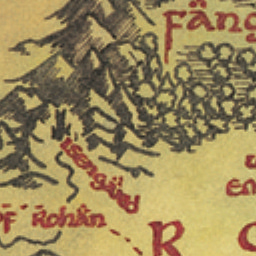 Fäng
Isengard
of Rohan
R